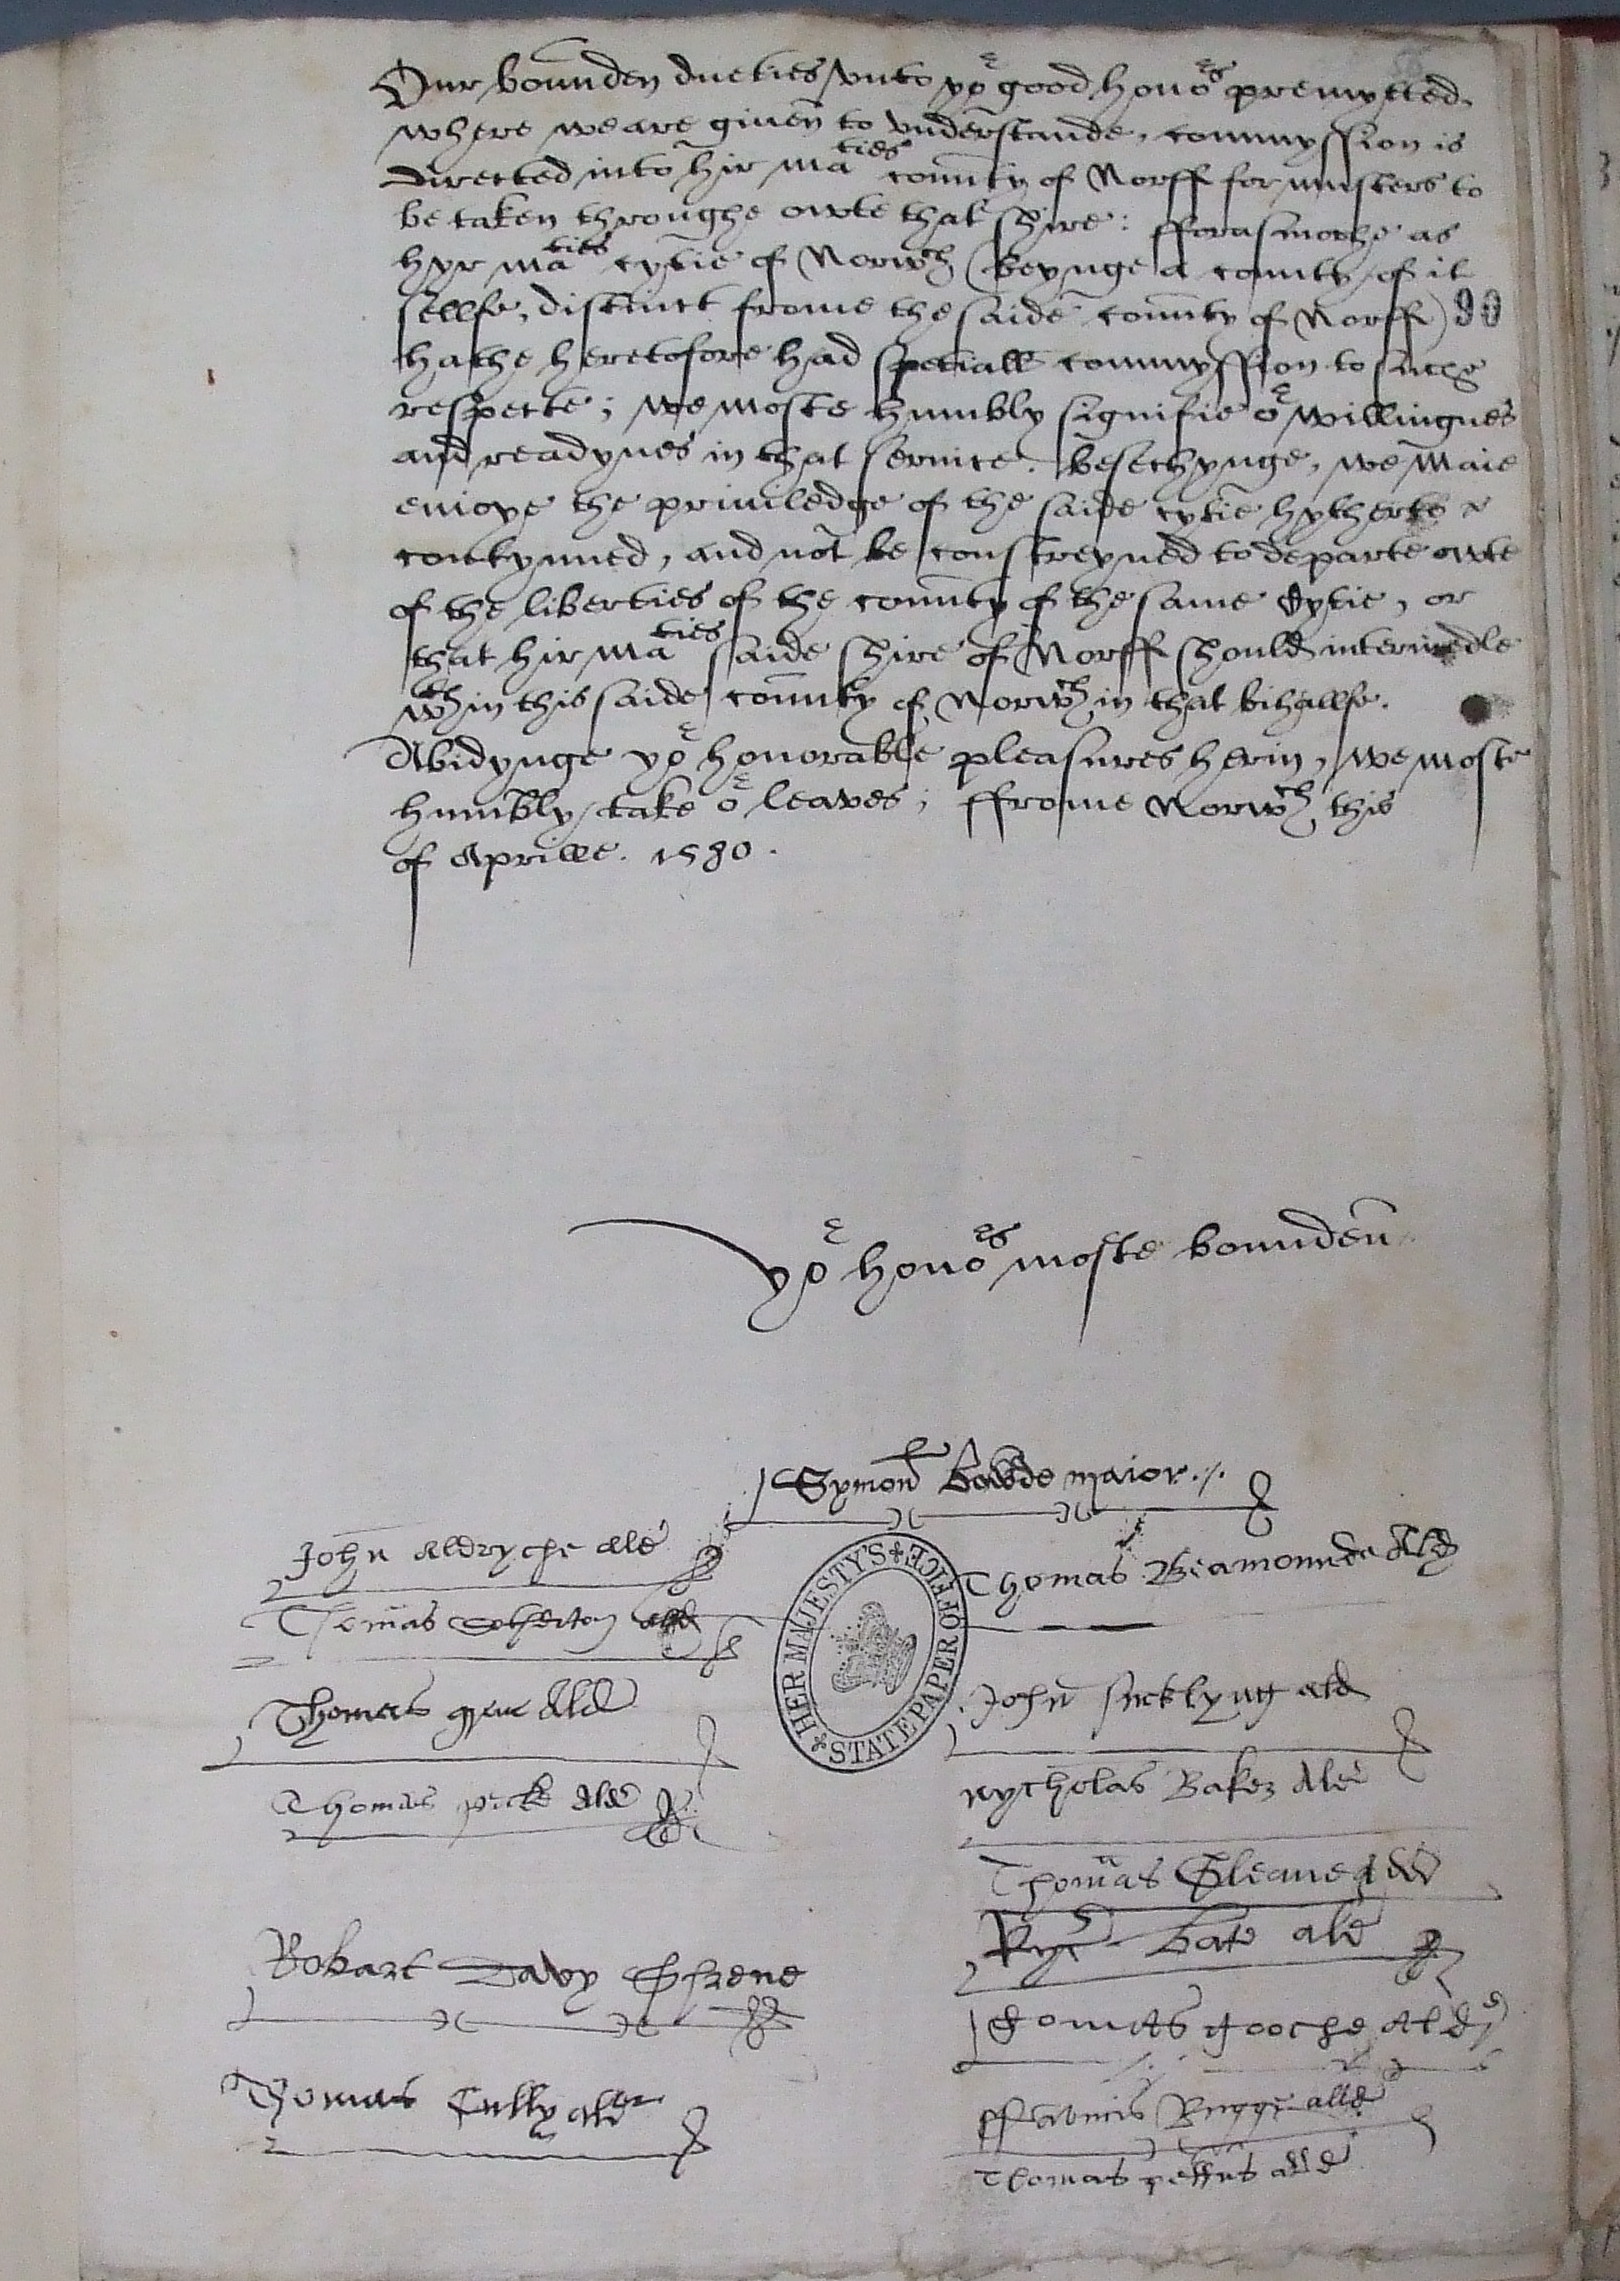 Our bounden dueties vnto yor good honors premytted.
where we are given to vnderstande, commyssion is
directed into hir maties county of Norff for musters to
be taken throughe owte that shire: fforasmoche as
hyr maties cytie of Norwch (beynge a county of it
sellfe, distinct frome the saide county of Norff) 90
hathe heretofore had speciall commyssion to suche
respecte; we moste humbly signifie or willingnes
and readynes in that service. besechynge, we maie
enioye the priviledge of the saide cytie hytherto
contynued, and not be constreyned to departe owte
of the liberties of the county of the same Cytie, or
that hir maties saide shire of Norff should intermedle
wthin this saide county of Norwch in that bihallfe.
Abidynge yor honorable pleasures herin, we moste
humbly take or leaves; ffrome Norwch this
of Aprille. 1580.
yor honors moste bounden
Symond Bowde maior
John Aldryche ald
Thomas Beamounde Ald
Thomas Sotherton ald
HER MAJESTY'S STATE PAPER OFFICE
Thomas grene Ald
John sucklyng ald
Thomas pecke Ald
nycholas Baker Ald
Thomas Gleane Ald
Robart Davy Shreve
Ryc Bate ald
Thomas gooche Ald
Thomas Cully alder
ffrancis Rugge alld
Thomas pettus alld